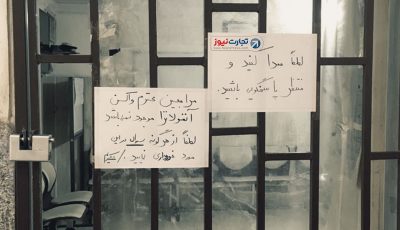 تجارت نیوز
لطفاً صدا کنید و
منتظر پاسخگویی باشید.
مراجعین محترم واکسن
آنفولانزا موجود نمی‌باشد
لطفاً از هرگونه سوال در این
مورد خودداری نمایید.